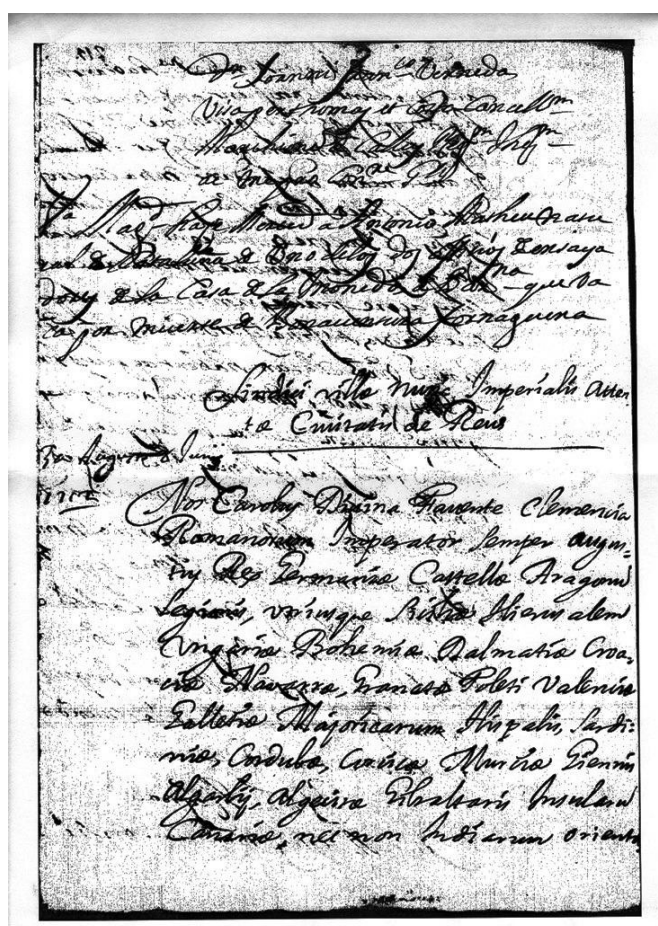 Dn Joannes Franco Verneda
Visa per
Magd
de
Va Magd haze Merced a Antonio Matheu natu
ral de Cathaluña de Uno de los dos officios de ensaya
dores de la Casa de la Moneda de Barna que va
ca por muerte de Bonaventura Fornaguera
Sindici villæ nunc Imperialis atten
tæ Civitatis de Reus
Nos Carolus Divina Favente Clemencia
Romanorum Imperator semper augus
tus Rex Germaniæ Castellæ Aragonum
Legionis, utriusque Siciliæ Hierusalem
Ungariæ Bohemiæ Dalmatiæ Croa
ciæ Navarræ, Granatæ Toleti Valenciæ
Galletiæ Majoricarum Hispalis, Sardi
niæ, Cordubæ, Corsicæ Murciæ Giennis
Algarbij, Algeciræ Gibraltaris Insularum
Canariæ, nec non Indiarum orienta